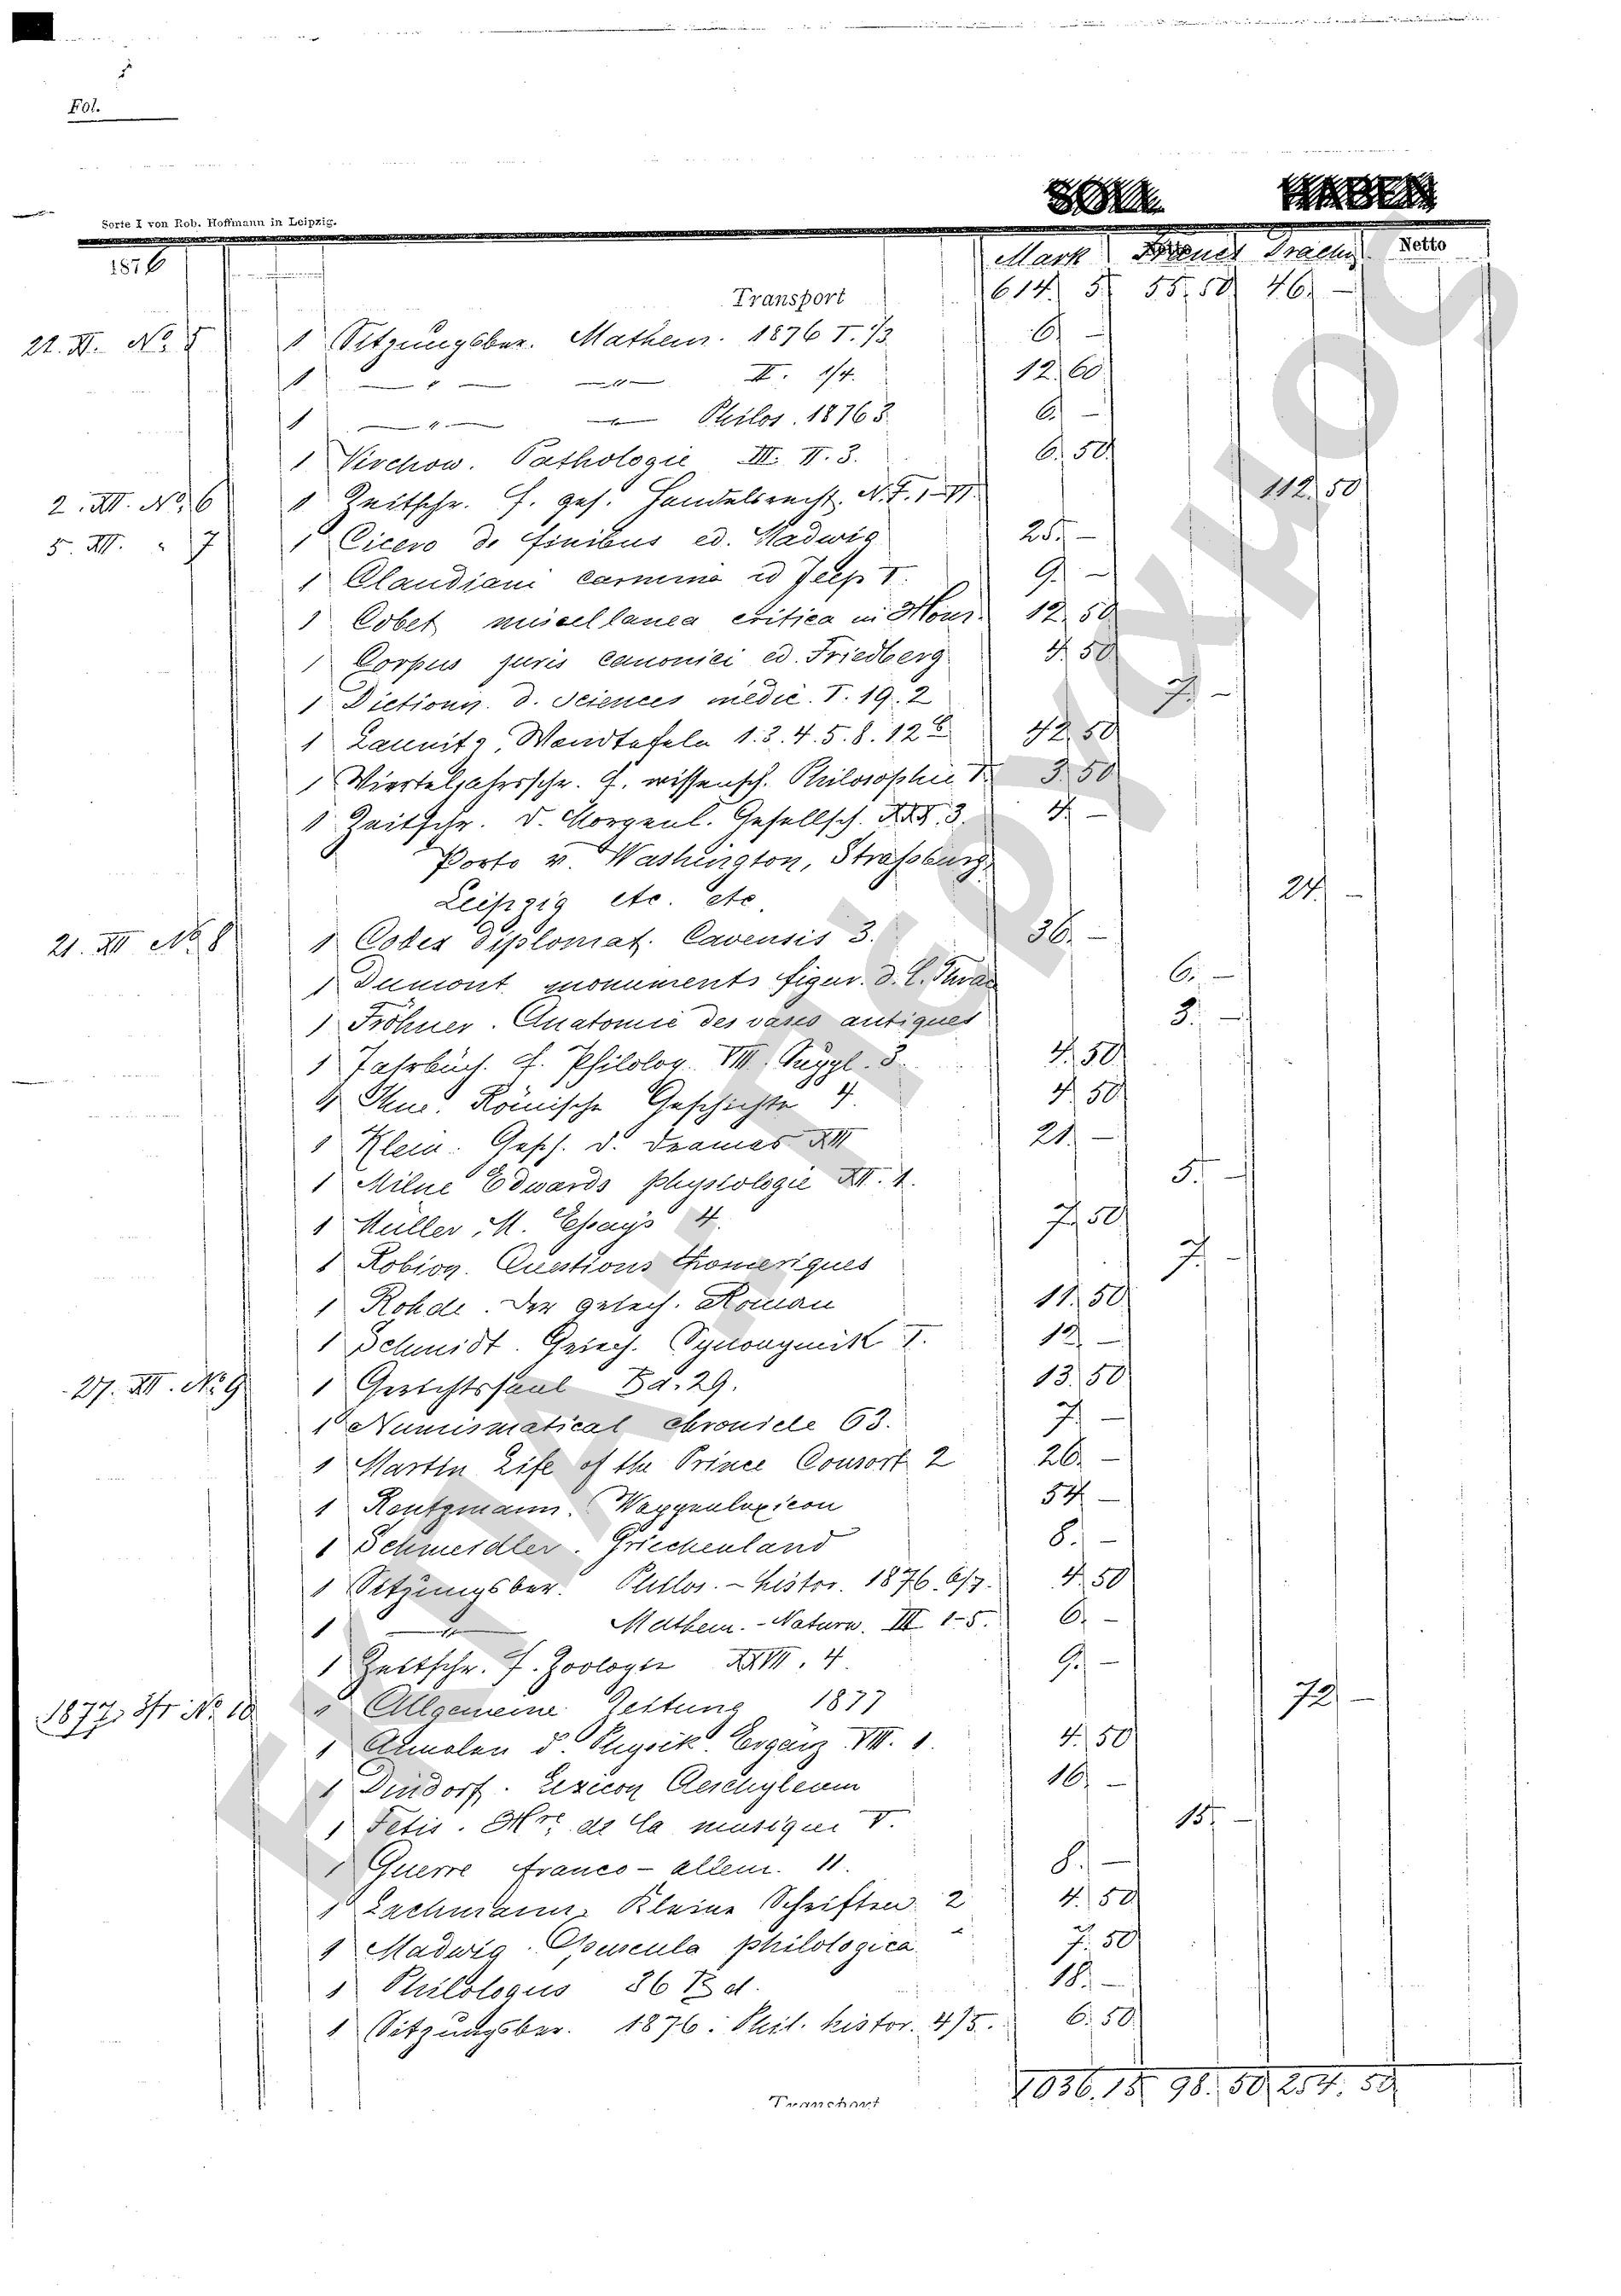 Fol.
SOLL HABEN
Sorte I von Rob. Hoffmann in Leipzig.
1876 Mark Francs Drachm Netto
Transport 614. 5 55.50 46. —
22. XI. No. 5 1 Sitzungsber. Mathem. 1876 I. 1/3 6. —
1 — " — — " — II. 1/4. 12.60
1 — " — — " — Philos. 1876 3. 6. —
1 Virchow. Pathologie III. II. 3. 6.50
2. XII. No. 6 1 Zeitschr. f. ges. Handelsrecht. N. F. I–VI. 112.50
5. XII. " 7 1 Cicero de finibus ed. Madwig 25. —
1 Claudiani carmina ed Jeep I. 9. —
1 Cobet miscellanea critica in Hom. 12.50
1 Corpus juris canonici ed. Friedberg 4.50
1 Dictionn. d. Sciences médic. I. 19.2 7. —
1 Launitz, Wandtafeln 1.3.4.5.8.12b 42.50
1 Vierteljahrsschr. f. wissensch. Philosophie I. 3.50
1 Zeitschr. d. Morgenl. Gesellsch. XXX. 3. 4. —
Porto v. Washington, Strassburg,
Leipzig etc. etc. 24. —
21. XII No. 8 1 Codex diplomat. Cavensis 3. 36. —
1 Dumont monuments figur. d. l. Thrac 6. —
1 Fröhner. Anatomie des vases antiques 3. —
1 Jahrbüch. f. Philolog. VIII. Suppl. 3. 4.50
1 Ihne. Römische Geschichte 4. 4.50
1 Klein. Gesch. d. Dramas XIII 21. —
1 Milne Edwards physiologie XII. 1. 5. —
1 Müller, M. Essays 4. 7.50
1 Robiou. Questions homeriques 7. —
1 Rohde. Der griech. Roman 11.50
1 Schmidt. Griech. Synonymik I. 12. —
27. XII. No. 9 1 Gerichtssaal Bd. 29. 13.50
1 Numismatical chronicle 63. 7. —
1 Martin Life of the Prince Consort 2 26. —
1 Rentzmann. Wappenlexicon 54. —
1 Schmeidler. Griechenland 8. —
1 Sitzungsber. Philos.-histor. 1876. 6/7. 4.50
1 — " — Mathem.-Naturw. III 1-5. 6. —
1 Zeitschr. f. Zoologie XXVII. 4. 9. —
1877, 3/1 No. 10 1 Allgemeine Zeitung 1877 72. —
1 Annalen d. Physik. Ergänz. VIII. 1. 4.50
1 Dindorf. Lexicon Aeschyleum 16. —
1 Fetis. Hre de la musique V. 15. —
1 Guerre franco-allem. 11. 8. —
1 Lachmann. Kleine Schriften. 2 4.50
1 Madwig. Opuscula philologica. 7.50
1 Philologus 36 Bd. 18. —
1 Sitzungsber. 1876. Phil. histor. 4/5. 6.50
Transport 1036.15 98.50 254.50